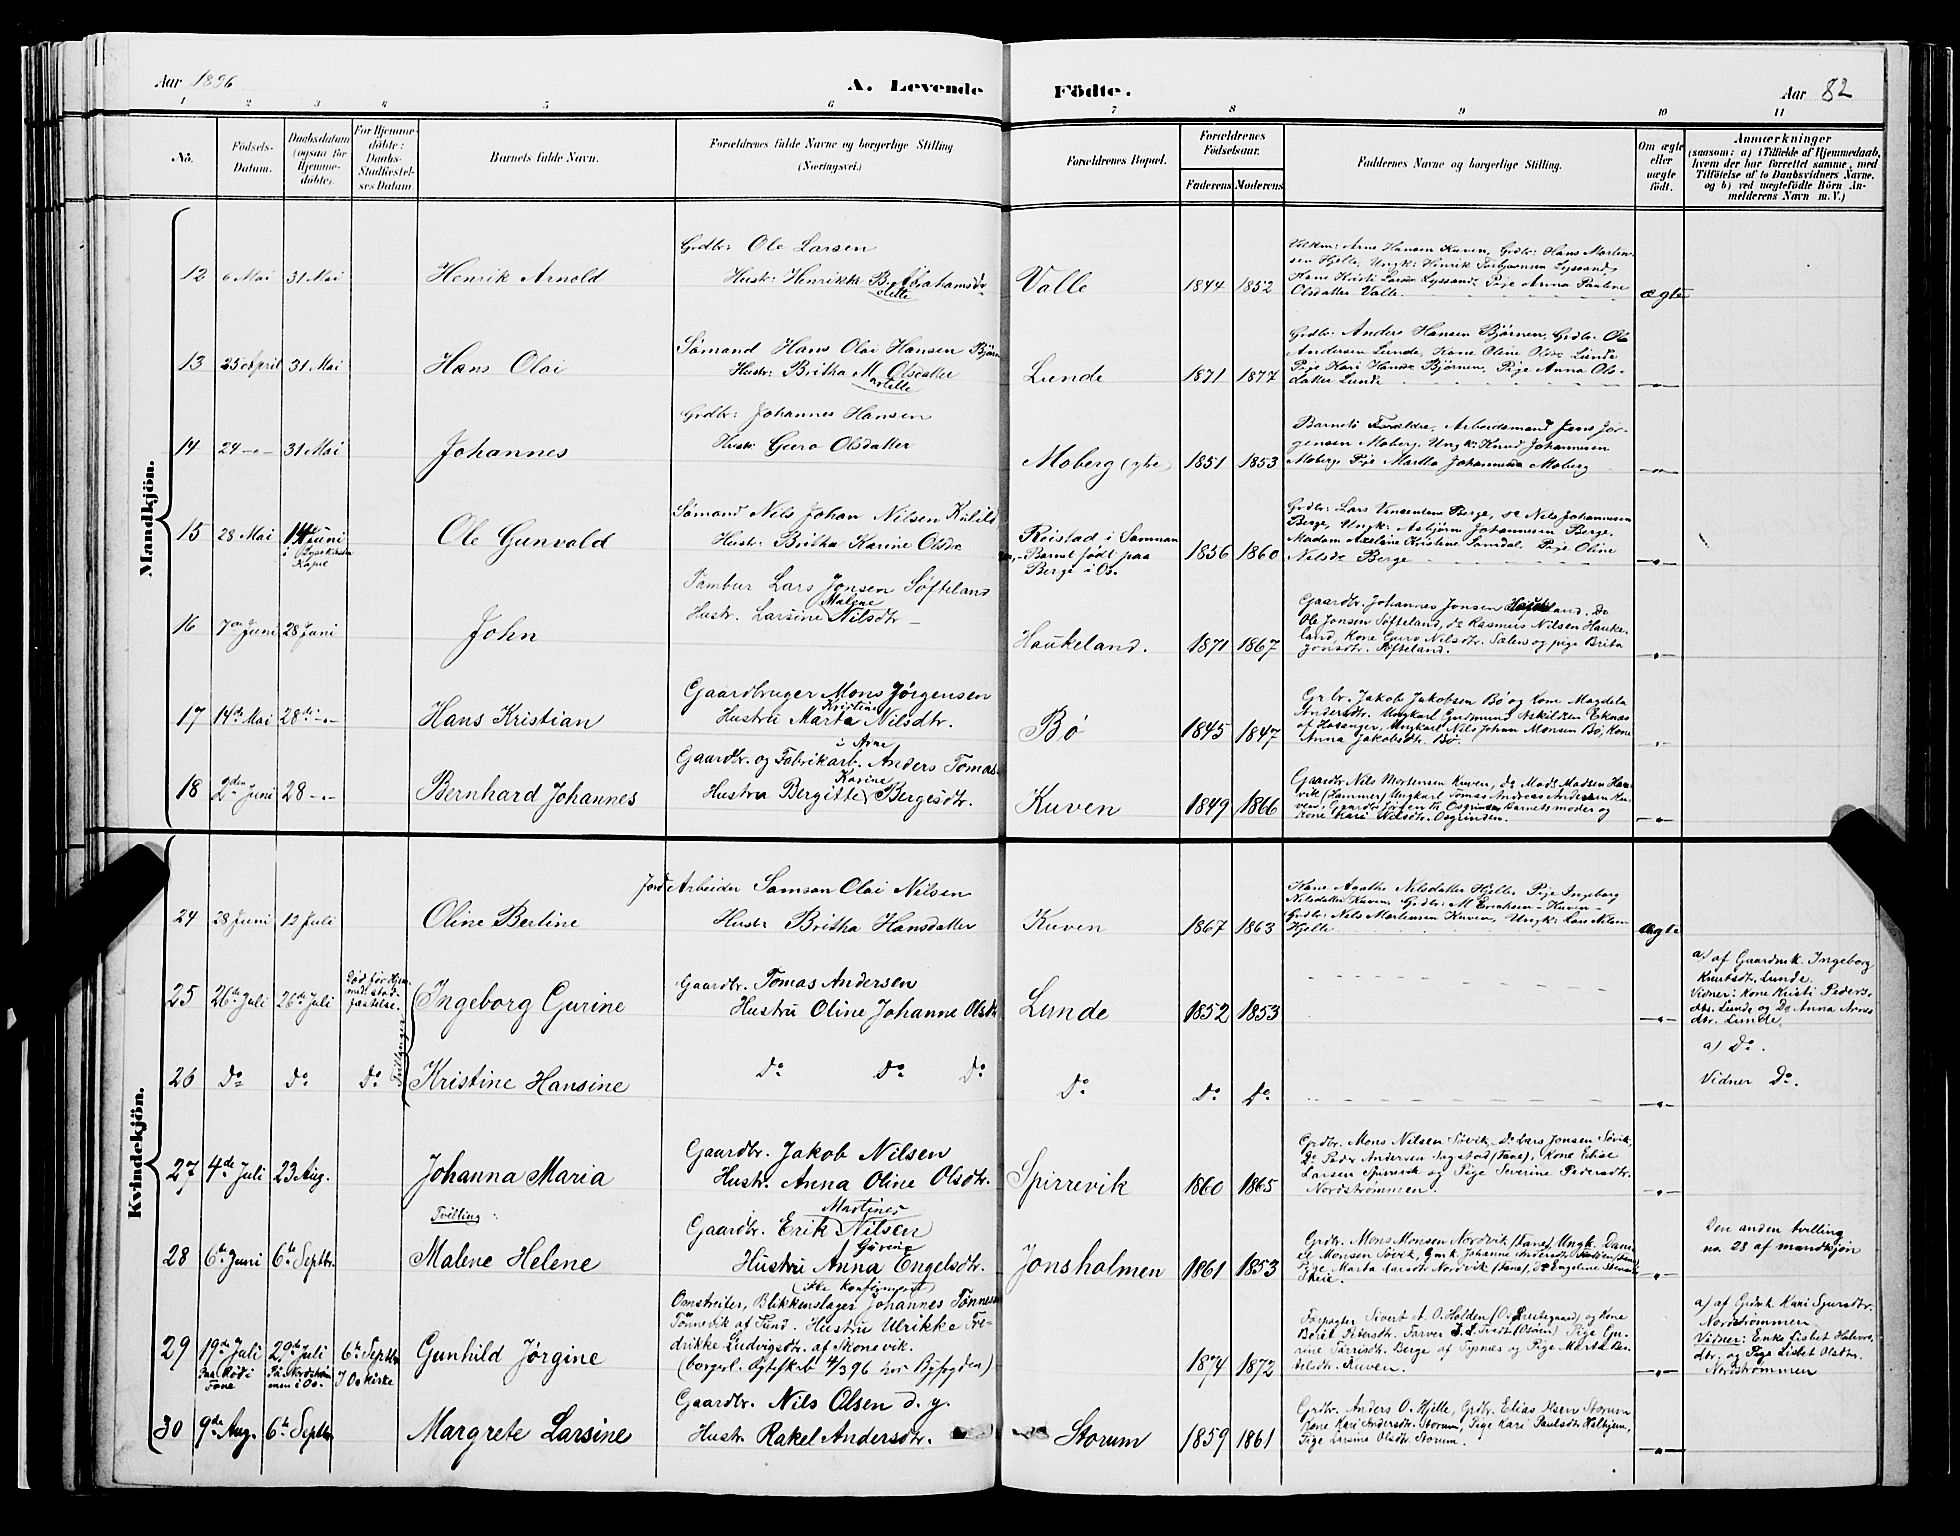 Aar 1896
A. Levende Födte.
Aar 82
1 2 3 4 5 6 7 8 9 10 11
No.
Födsels-Datum.
Daabsdatum (ogsaa for Hjemme-döbte).
For Hjemme-döbte: Daabs-Stadfæstel-ses Datum.
Barnets fulde Navn.
Forældrenes fulde Navne og borgerlige Stilling (Næringsvei.)
Forældrenes Bopæl.
Forældrenes Fødselsaar.
Faderens Moderens
Faddernes Navne og borgerlige Stilling.
Om ægte eller uægte födt.
Anmærkninger
(saasom: a) i Tilfælde af Hjemmedaab,
hvem der har forrettet samme, med
Tilföielse af to Daabsvidners Navne.
og b) ved uægtefödte Börn An-
melderens Navn m.V.)
Mandkjön.
12 6 Mai 31 Mai Henrik Arnold
Grdbr: Ole Larsen
Hustr: Henrikke B. Abrahamsdr
Valle 1844 1852
Vikm: Arne Hansen Kuven, Grdbr: Hans Morten-
sen Hjelle, Ungk: Henrik Torbjørnsen Lyssand,
Kone Kristi Larsdr Lyssand, Pige Anna Pauline
Olsdatter Valle.
ægte
13 25 April 31 Mai Hans Olai
Sømand Hans Olai Hansen Bjørn
Hustr: Britha M. Olsdatter
Lunde 1871 1877
Grdbr: Anders Hansen Bjørnen, Grdbr: Ole
Andersen Lunde, Kone Oline Olsdr Lunde
Pige Kari Hansdr Bjørnen, Pige Anna Ols-
datter Lunde
14 24 -"- 31 Mai Johannes
Grdbr: Johannes Hansen
Hustr: Guro Olsdatter
Moberg (ytre) 1851 1853
Barnets Forældre, Arbeidsmand Jens Jør-
gensen Moberg, Ungk: Knud Johannesen
Moberg, Pige Martha Johannesdr Moberg
15 28 Mai 14 Juni i Kapel Ole Gunvald
Sømand Nils Johan Nilsen Kulild
Hustr: Britha Karine Olsdr
Røistad i Samnan
Barnet født paa
Berge i Os.
1856 1860
Grdbr: Lars Vincentsen Berge, do Nils Johannesen
Berge, Ungk: Asbjørn Johannesen Berge,
Madam Axeline Kristine Samdal, Pige Oline
Nilsdr Berge
16 7de Juni 28 Juni John
Tambur Lars Jonsen Søfteland
Hustr. Larsine Malene Nilsdtr
Haukeland. 1871 1867
Gaardbr. Johannes Jonsen Haukeland, Do
Ole Jonsen Søfteland, do Rasmus Nilsen Hauke-
land, Kone Guro Nilsdtr. Sælen og pige Brita
Jonsdtr. Søfteland.
17 14de Mai 28de -"- Hans Kristian
Gaardbruger Mons Jørgensen
Hustru Marta Kristine Nilsdtr.
Bø 1845 1847
Grbr. Jakob Jakobsen Bø og Kone Magdela
Andersdtr. Ungkarl Gudmund Askildsen Eknæs
af Hosanger, Ungkarl Nils Johan Monsen Bø, Kone
Anna Jakobsdtr. Bø.
18 2den Juni 28 -"- Bernhard Johannes
Gaardbr. og Fabrikarb. i Arne Anders Tomas.
Hustru Bergitte Karine Bergesdtr.
Kuven 1849 1866
Gaardbr. Nils Mortensen Kuven, do Mads Madsen Hau-
vik (Hammer) Ungkarl Tomas Andreas Andersen Ku-
ven, Gaardbr. Osgrinden Barnets moder og
Kone Kari Nilsdtr. Osgrinden.
Kvindekjön.
24 28 Juni 12 Juli Oline Bertine
Jord-Arbeider Samson Olai Nilsen
Hustr: Britha Hansdatter
Kuven 1867 1863
Kone Agathe Nilsdatter Hjelle, Pige Ingeborg
Nilsdatter Kuven, Grdbr: M Erichsen Kuven
Grdbr: Nils Mortensen Kuven, Ungk: Lars Nilsen
Hjelle
ægte
25 26de Juli 26de Juli Død før Hjem-
med. stad-
fæstelse. Ingeborg Gurine
Tvillinger
Gaardbr. Tomas Andersen
Hustru Oline Johanne Olsdr
Lunde 1852 1853
a) af Gaardmk. Ingeborg
Knutsdtr. Lunde.
Vidner: Kone Kristi Peders-
dtr. Lunde og Do Anna Arnes
dtr. Lunde.
26 Do Do Do Kristine Hansine
Do Do Do
Do Do Do
a) Do.
Vidner Do.
27 4de Juli 23 Aug. Johanna Maria
Gaardbr. Jakob Nilsen
Hustr. Anna Oline Olsdtr.
Spirrevik 1860 1865
Grdbr. Mons Nilsen Søvik, Do Lars Jonsen Søvik,
Do Peder Andersen Segstad (Fane), Kone Elise
Larsen Spirrevik og Pige Severine Pedersdtr.
Nordstrømmen.
28 6te Juni 6te Septbr. Tvilling: Malene Helene
Gaardbr. Erik Martines Nilsen
Hustru Anna Gurine Engelsdtr.
Jonsholmen 1861 1853
Grdbr. Mons Monsen Nordvik (Fane), Ungk. Dani-
el Monsen Søvik, Gmk. Johanne Andersdtr
Pige Marta Larsdtr Nordvik (Fane), Do Engeline
Skeie.
Den anden tvilling
no. 28 af mandkjøn
29 19de Juli Paa Rød i Fane 29de Juli Paa Nordstrøm-
men i Os. 6te Septbr. I Os Kirke Gunhild Jørgine
(Ikke konfirmeret)
Omstreifer, Blikkenslager Johannes Tønnesen
Tønnevik af Lund. Hustru Ulrikke Fre-
drikke Ludvigsdtr. af Skonevik.
(borgerl. Ægteskab 4/3 96 hos Byfogden)
1874 1872
Forpagter Sivert A. O. Holden (O. Lysegaard) og Kone
Berit Petersdtr. Farver J. S. Tvedt (Osøen) Pige Gu-
rine Sjurisdtr. Berge af Tysnes og Pige Marta
Kuven.
a) af Grdmk. Kari Sjursdtr.
Nordstrømmen.
Vidner: Enke Lisbet Halvors-
dtr. og Pige Lisbet Olsdtr.
Nordstrømmen
30 9de Aug. 6te Septbr Margrete Larsine
Gaardbr. Nils Olsen d. y.
Hustr. Rakel Andersdtr.
Storum 1859 1861
Grdbr. Anders O. Hjelle, Grdbr. Elias Olsen Storum
Kone Kari Andersdtr. Storum, Pige Kari Paulsdtr Halhjem,
Pige Larsine Olsdtr. Storum.